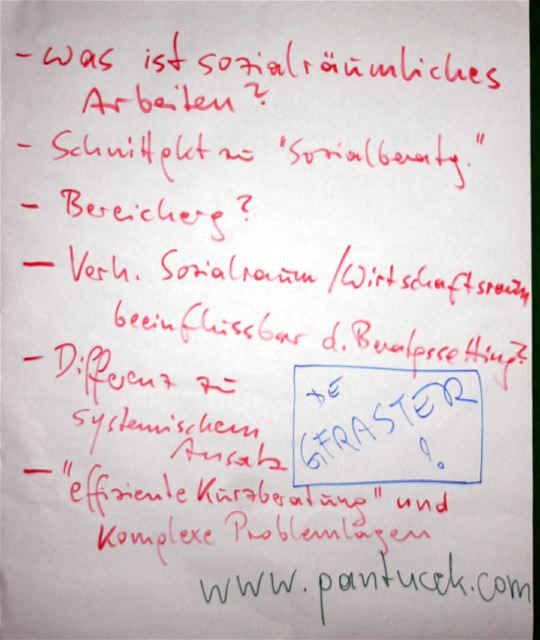 - Was ist sozialräumliches
Arbeiten?
- Schnittpkt zu "Sozialberatg."
- Bereicherg?
- Verh. Sozialraum / Wirtschaftsraum
beeinflussbar d. Beratgssetting?
- Differenz zu
systemischem
Ansatz
DE
GFRASTER
!
- "effiziente Kurzberatung" und
komplexe Problemlagen
www.pantucek.com